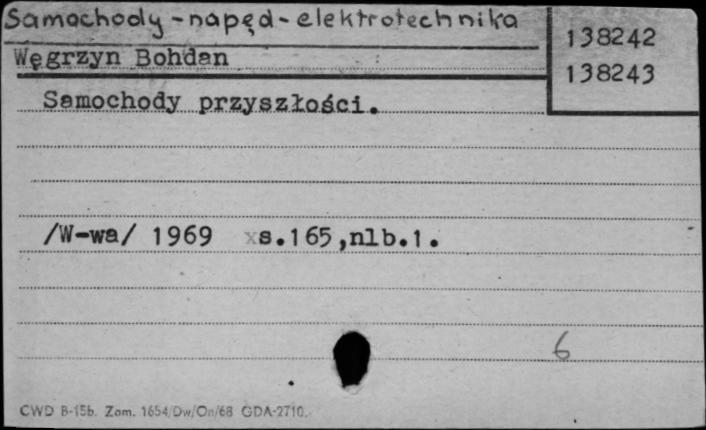 Samochody - napęd - elektrotechnika
138242
Węgrzyn Bohdan
138243
Samochody przyszłości.
/W-wa/ 1969 xs.165,nlb.1.
6
CWD B-15b. Zam. 1654/Dw/On/68 GDA-2710.